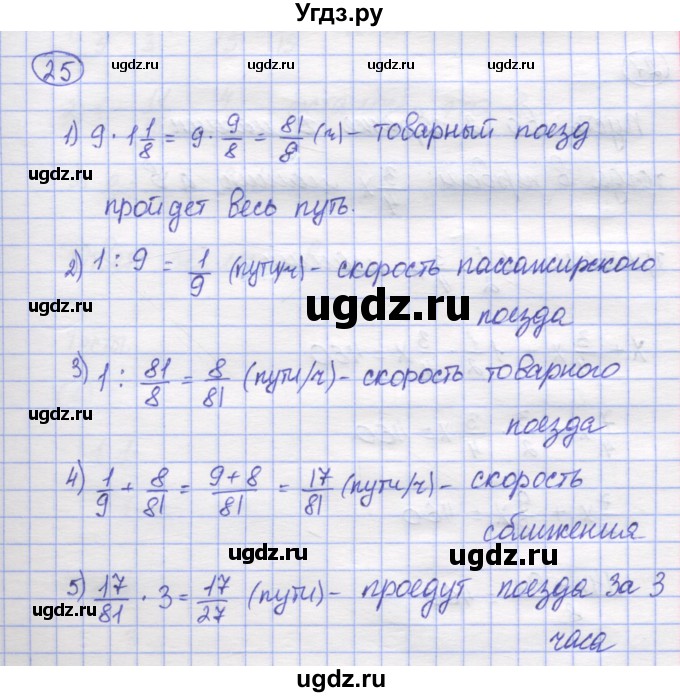 Угдз.ру
25
ugdz.ru ugdz.ru ugdz.ru
1) 9 · 1 1/8 = 9 · 9/8 = 81/8 (ч) – товарный поезд
ugdz.ru
пройдет весь путь.
2) 1 : 9 = 1/9 (пути/ч) – скорость пассажирского
ugdz.ru
ugdz.ru
поезда
3) 1 : 81/8 = 8/81 (пути/ч) – скорость товарного
ugdz.ru
поезда
4) 1/9 + 8/81 = 9+8/81 = 17/81 (пути/ч) – скорость
ugdz.ru ugdz.ru ugdz.ru
сближения
5) 17/81 · 3 = 17/27 (пути) – проедут поезда за 3
ugdz.ru
часа
ugdz.ru ugdz.ru ugdz.ru